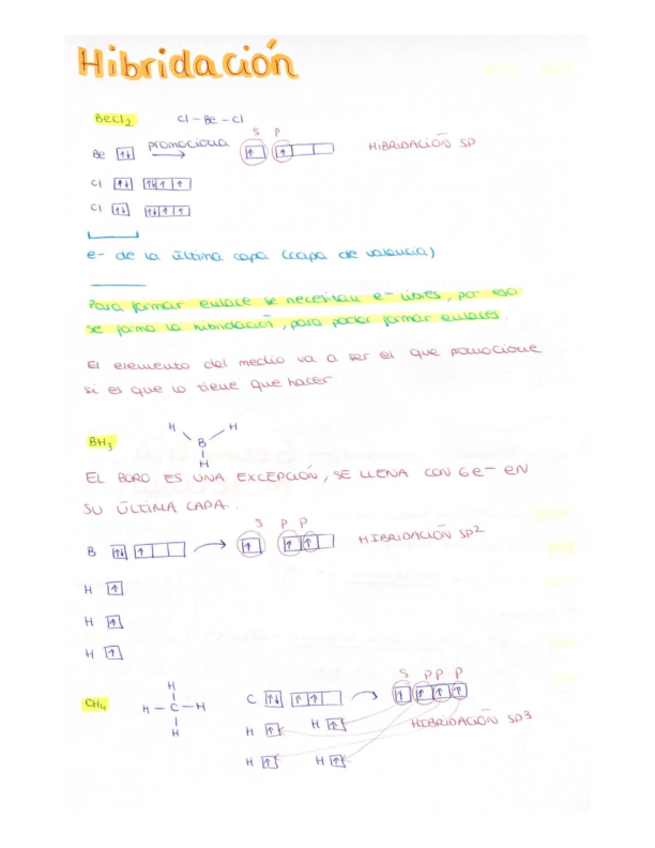 Hibridación
BeCl2 Cl-Be-Cl
S P
Be ↑↓ promociona → ↑ ↑ HIBRIDACIÓN SP
Cl ↑↓ ↑↓ ↑ ↑
Cl ↑↓ ↑↓ ↑ ↑
e- de la última capa (capa de valencia)
Para formar enlace se necesitan e- libres, por eso
se forma la hibridación, para poder formar enlaces.
El elemento del medio va a ser el que promocione
si es que lo tiene que hacer.
H H
BH3 B
H
EL BORO ES UNA EXCEPCIÓN, SE LLENA CON 6e- EN
SU ÚLTIMA CAPA.
S P P
B ↑↓ ↑ → ↑ ↑ ↑ HIBRIDACIÓN SP2
H ↑
H ↑
H ↑
S P P P
H
C ↑↓ ↑ ↑ → ↑ ↑ ↑ ↑
CH4 H-C-H
H
H ↑ H ↑ HIBRIDACIÓN SP3
H ↑ H ↑